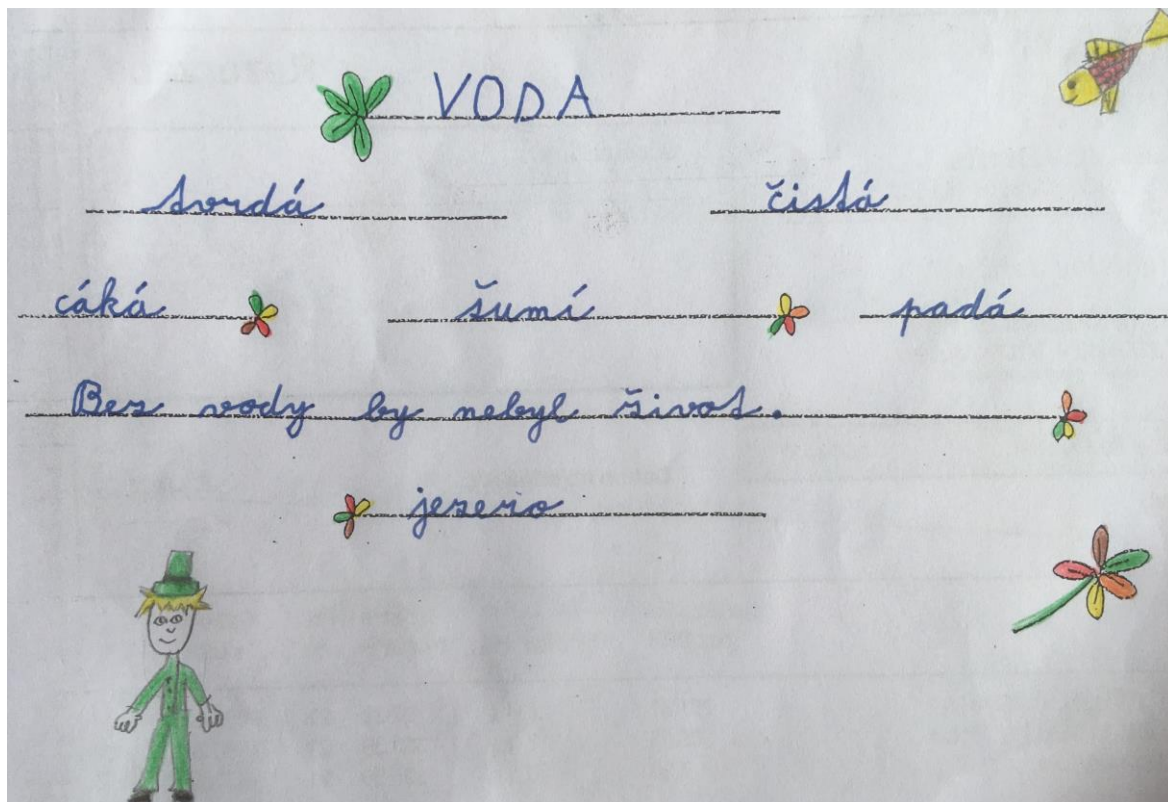 VODA
tvrdá čistá
cáká šumí padá
Bez vody by nebyl život.
jezero